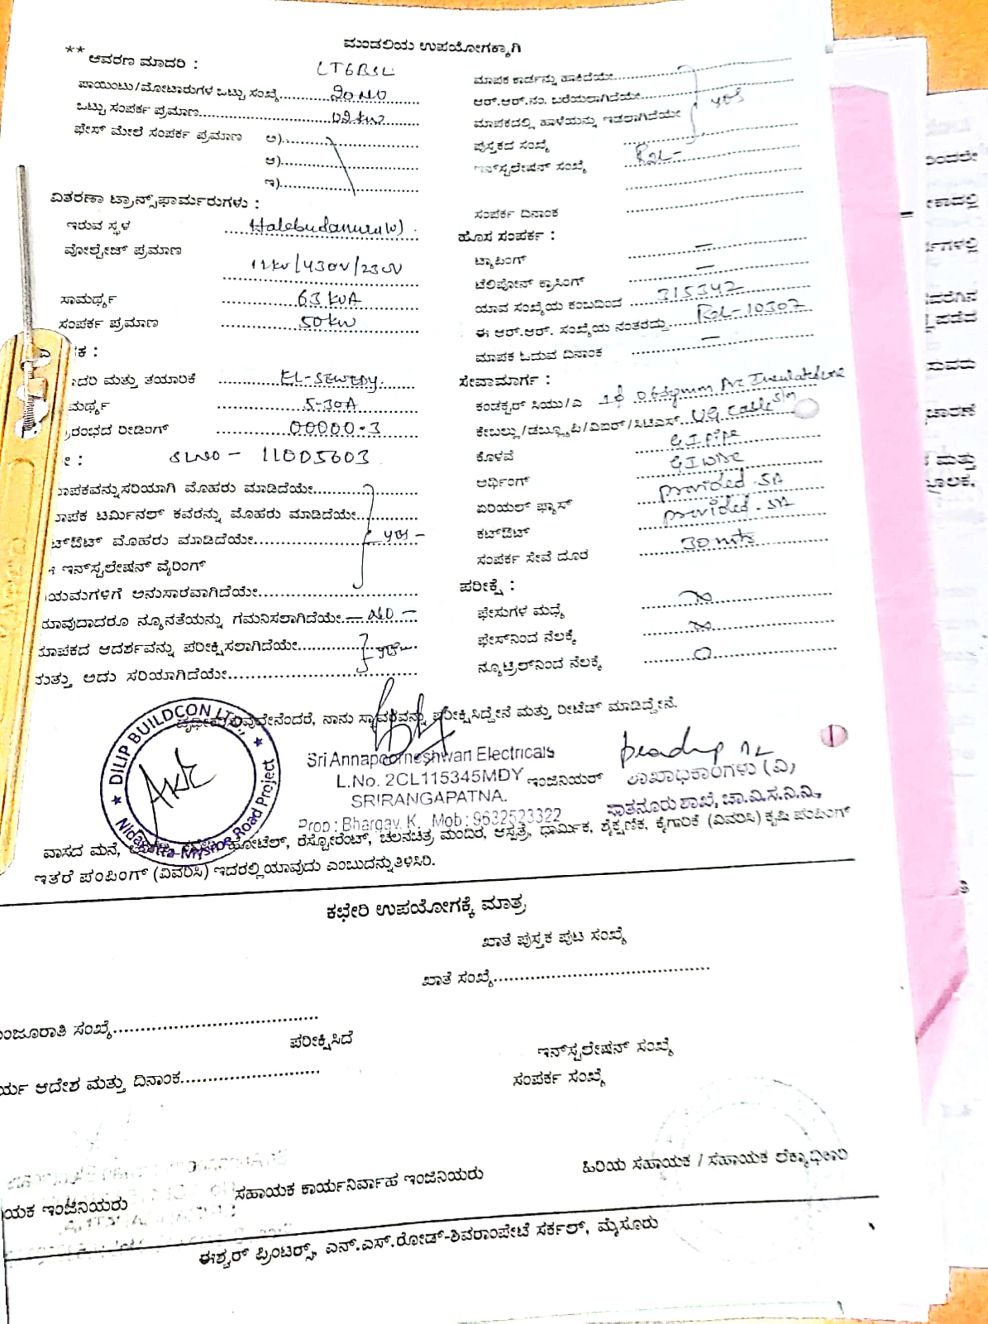 ಮಂಡಲಿಯ ಉಪಯೋಗಕ್ಕಾಗಿ
** ಆವರಣ ಮಾದರಿ : LT6BSL
ಪಾಯಿಂಟು/ಮೋಟಾರುಗಳ ಒಟ್ಟು ಸಂಖ್ಯೆ 20 NO
ಒಟ್ಟು ಸಂಪರ್ಕ ಪ್ರಮಾಣ 02 kw
ಫೇಸ್ ಮೇಲೆ ಸಂಪರ್ಕ ಪ್ರಮಾಣ ಅ)
ಆ)
ಇ)
ವಿತರಣಾ ಟ್ರಾನ್ಸ್‌ಫಾರ್ಮರುಗಳು :
ಇರುವ ಸ್ಥಳ Halebudanuru(W)
ವೋಲ್ಟೇಜ್ ಪ್ರಮಾಣ 11kv/430V/230V
ಸಾಮರ್ಥ್ಯ 63 kVA
ಸಂಪರ್ಕ ಪ್ರಮಾಣ 50kw
ಕ :
ದರಿ ಮತ್ತು ತಯಾರಿಕೆ EL-SEWEDY.
ಮರ್ಥ್ಯ 5-30A
ರಂಭದ ರೀಡಿಂಗ್ 00000-3
: SLNO - 11005603
ಮಾಪಕವನ್ನು ಸರಿಯಾಗಿ ಮೊಹರು ಮಾಡಿದೆಯೇ
ಮಾಪಕ ಟರ್ಮಿನಲ್ ಕವರನ್ನು ಮೊಹರು ಮಾಡಿದೆಯೇ
ಟ್‌ಔಟ್ ಮೊಹರು ಮಾಡಿದೆಯೇ yes -
ಇನ್‌ಸ್ಟಲೇಷನ್ ವೈರಿಂಗ್
ಯಮಗಳಿಗೆ ಅನುಸಾರವಾಗಿದೆಯೇ
ಯಾವುದಾದರೂ ನ್ಯೂನತೆಯನ್ನು ಗಮನಿಸಲಾಗಿದೆಯೇ - NO -
ಮಾಪಕದ ಆದರ್ಶವನ್ನು ಪರೀಕ್ಷಿಸಲಾಗಿದೆಯೇ
ಮತ್ತು ಅದು ಸರಿಯಾಗಿದೆಯೇ yes
ಮಾಪಕ ಕಾರ್ಡನ್ನು ಹಾಕಿದೆಯೇ
ಆರ್.ಆರ್.ನಂ. ಬರೆಯಲಾಗಿದೆಯೇ yes
ಮಾಪಕದಲ್ಲಿ ಹಾಳೆಯನ್ನು ಇಡಲಾಗಿದೆಯೇ
ಪುಸ್ತಕದ ಸಂಖ್ಯೆ
ಇನ್‌ಸ್ಟಲೇಷನ್ ಸಂಖ್ಯೆ
ಸಂಪರ್ಕ ದಿನಾಂಕ
ಹೊಸ ಸಂಪರ್ಕ :
ಟ್ಯಾಪಿಂಗ್ -
ಟೆಲಿಫೋನ್ ಕ್ರಾಸಿಂಗ್ -
ಯಾವ ಸಂಖ್ಯೆಯ ಕಂಬದಿಂದ 315342
ಈ ಆರ್.ಆರ್. ಸಂಖ್ಯೆಯ ನಂತರದ್ದು -10307
ಮಾಪಕ ಓದುವ ದಿನಾಂಕ -
ಸೇವಾಮಾರ್ಗ :
ಕಂಡಕ್ಟರ್ ಸಿಯು/ಎ
ಕೇಬಲ್ಲು/ಡಬ್ಲ್ಯೂಪಿ/ವಿಐಆರ್/ಸಿಟಿಎಸ್ UG Cable
ಕೊಳವೆ GI pipe
ಅರ್ಥಿಂಗ್ GI wire
ಏರಿಯಲ್ ಫ್ಯೂಸ್ provided. SA
ಕಟ್‌ಔಟ್ provided. SA
ಸಂಪರ್ಕ ಸೇವೆ ದೂರ 30 mts
ಪರೀಕ್ಷೆ :
ಫೇಸುಗಳ ಮಧ್ಯೆ
ಫೇಸ್‌ನಿಂದ ನೆಲಕ್ಕೆ
ನ್ಯೂಟ್ರಲ್‌ನಿಂದ ನೆಲಕ್ಕೆ 0
ನಾನು ಸ್ಥಾವರವನ್ನು ಪರೀಕ್ಷಿಸಿದ್ದೇನೆ ಮತ್ತು ರೀಟೆಡ್ ಮಾಡಿದ್ದೇನೆ.
DILIP BUILDCON LTD.,
Nidaghatta-Mysore Road Project
Sri Annapoorneshwari Electricals
L.No. 2CL115345MDY
SRIRANGAPATNA.
Prop : Bhargav. K. Mob : 9632523322
ಇಂಜಿನಿಯರ್
ಶಾಖಾಧಿಕಾರಿಗಳು (ವಿ)
ಸಾತನೂರು ಶಾಖೆ, ಚಾ.ವಿ.ಸ.ನಿ.ನಿ.,
ವಾಸದ ಮನೆ, ಹೋಟೆಲ್, ರೆಸ್ಟೋರೆಂಟ್, ಚಲನಚಿತ್ರ ಮಂದಿರ, ಆಸ್ಪತ್ರೆ, ಧಾರ್ಮಿಕ, ಶೈಕ್ಷಣಿಕ, ಕೈಗಾರಿಕೆ (ವಿವರಿಸಿ) ಕೃಷಿ ಪಂಪಿಂಗ್
ಇತರೆ ಪಂಪಿಂಗ್ (ವಿವರಿಸಿ) ಇದರಲ್ಲಿ ಯಾವುದು ಎಂಬುದನ್ನು ತಿಳಿಸಿರಿ.
ಕಛೇರಿ ಉಪಯೋಗಕ್ಕೆ ಮಾತ್ರ
ಖಾತೆ ಪುಸ್ತಕ ಪುಟ ಸಂಖ್ಯೆ
ಖಾತೆ ಸಂಖ್ಯೆ
ಂಜೂರಾತಿ ಸಂಖ್ಯೆ
ಪರೀಕ್ಷಿಸಿದೆ
ಇನ್‌ಸ್ಟಲೇಷನ್ ಸಂಖ್ಯೆ
ರ್ಯ ಆದೇಶ ಮತ್ತು ದಿನಾಂಕ
ಸಂಪರ್ಕ ಸಂಖ್ಯೆ
ಯಕ ಇಂಜಿನಿಯರು
ಸಹಾಯಕ ಕಾರ್ಯನಿರ್ವಾಹ ಇಂಜಿನಿಯರು
ಹಿರಿಯ ಸಹಾಯಕ / ಸಹಾಯಕ ಲೆಕ್ಕಾಧಿಕಾರಿ
ಈಶ್ವರ್ ಪ್ರಿಂಟರ್ಸ್, ಎನ್.ಎಸ್.ರೋಡ್-ಶಿವರಾಂಪೇಟೆ ಸರ್ಕಲ್, ಮೈಸೂರು